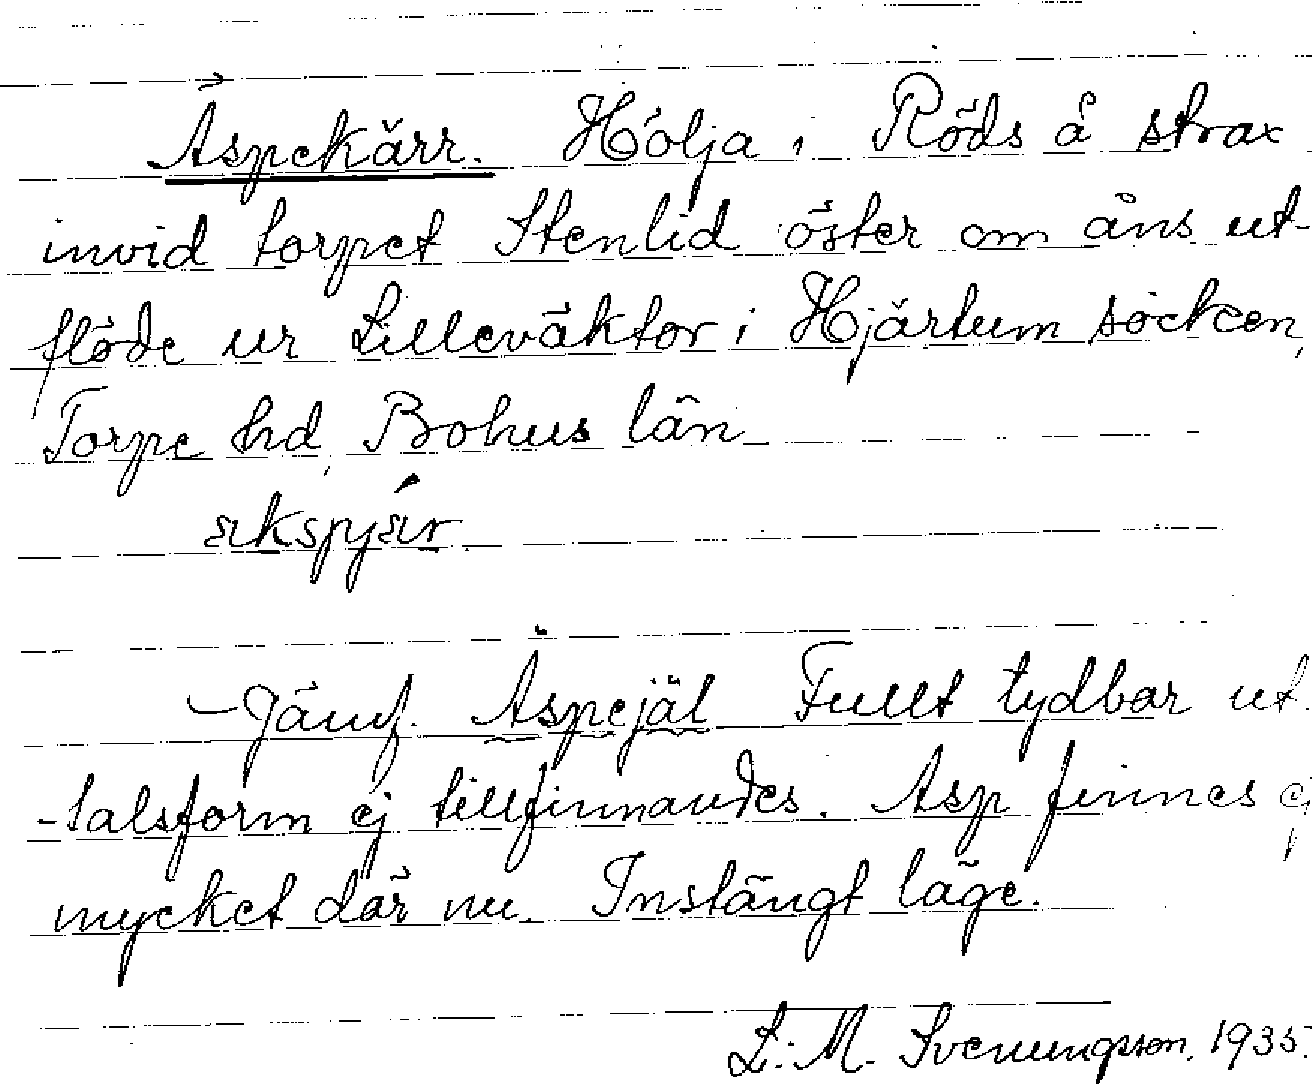 Äspekärr. Hölja i Röds å strax
invid torpet Stenlid öster om åns ut-
flöde ur Lilleväktor i Hjärtum socken,
Torpe hd, Bohus län
Jämf. Äspejäl Fullt tydbar ut-
-talsform ej tillfinnandes. Asp finnes ej
mycket där nu. Instängt läge.
L. M. Svenungsson. 1935.